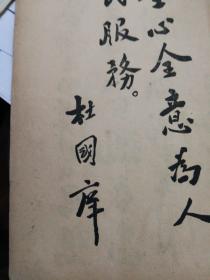 心全意為人
服務。
杜國庠